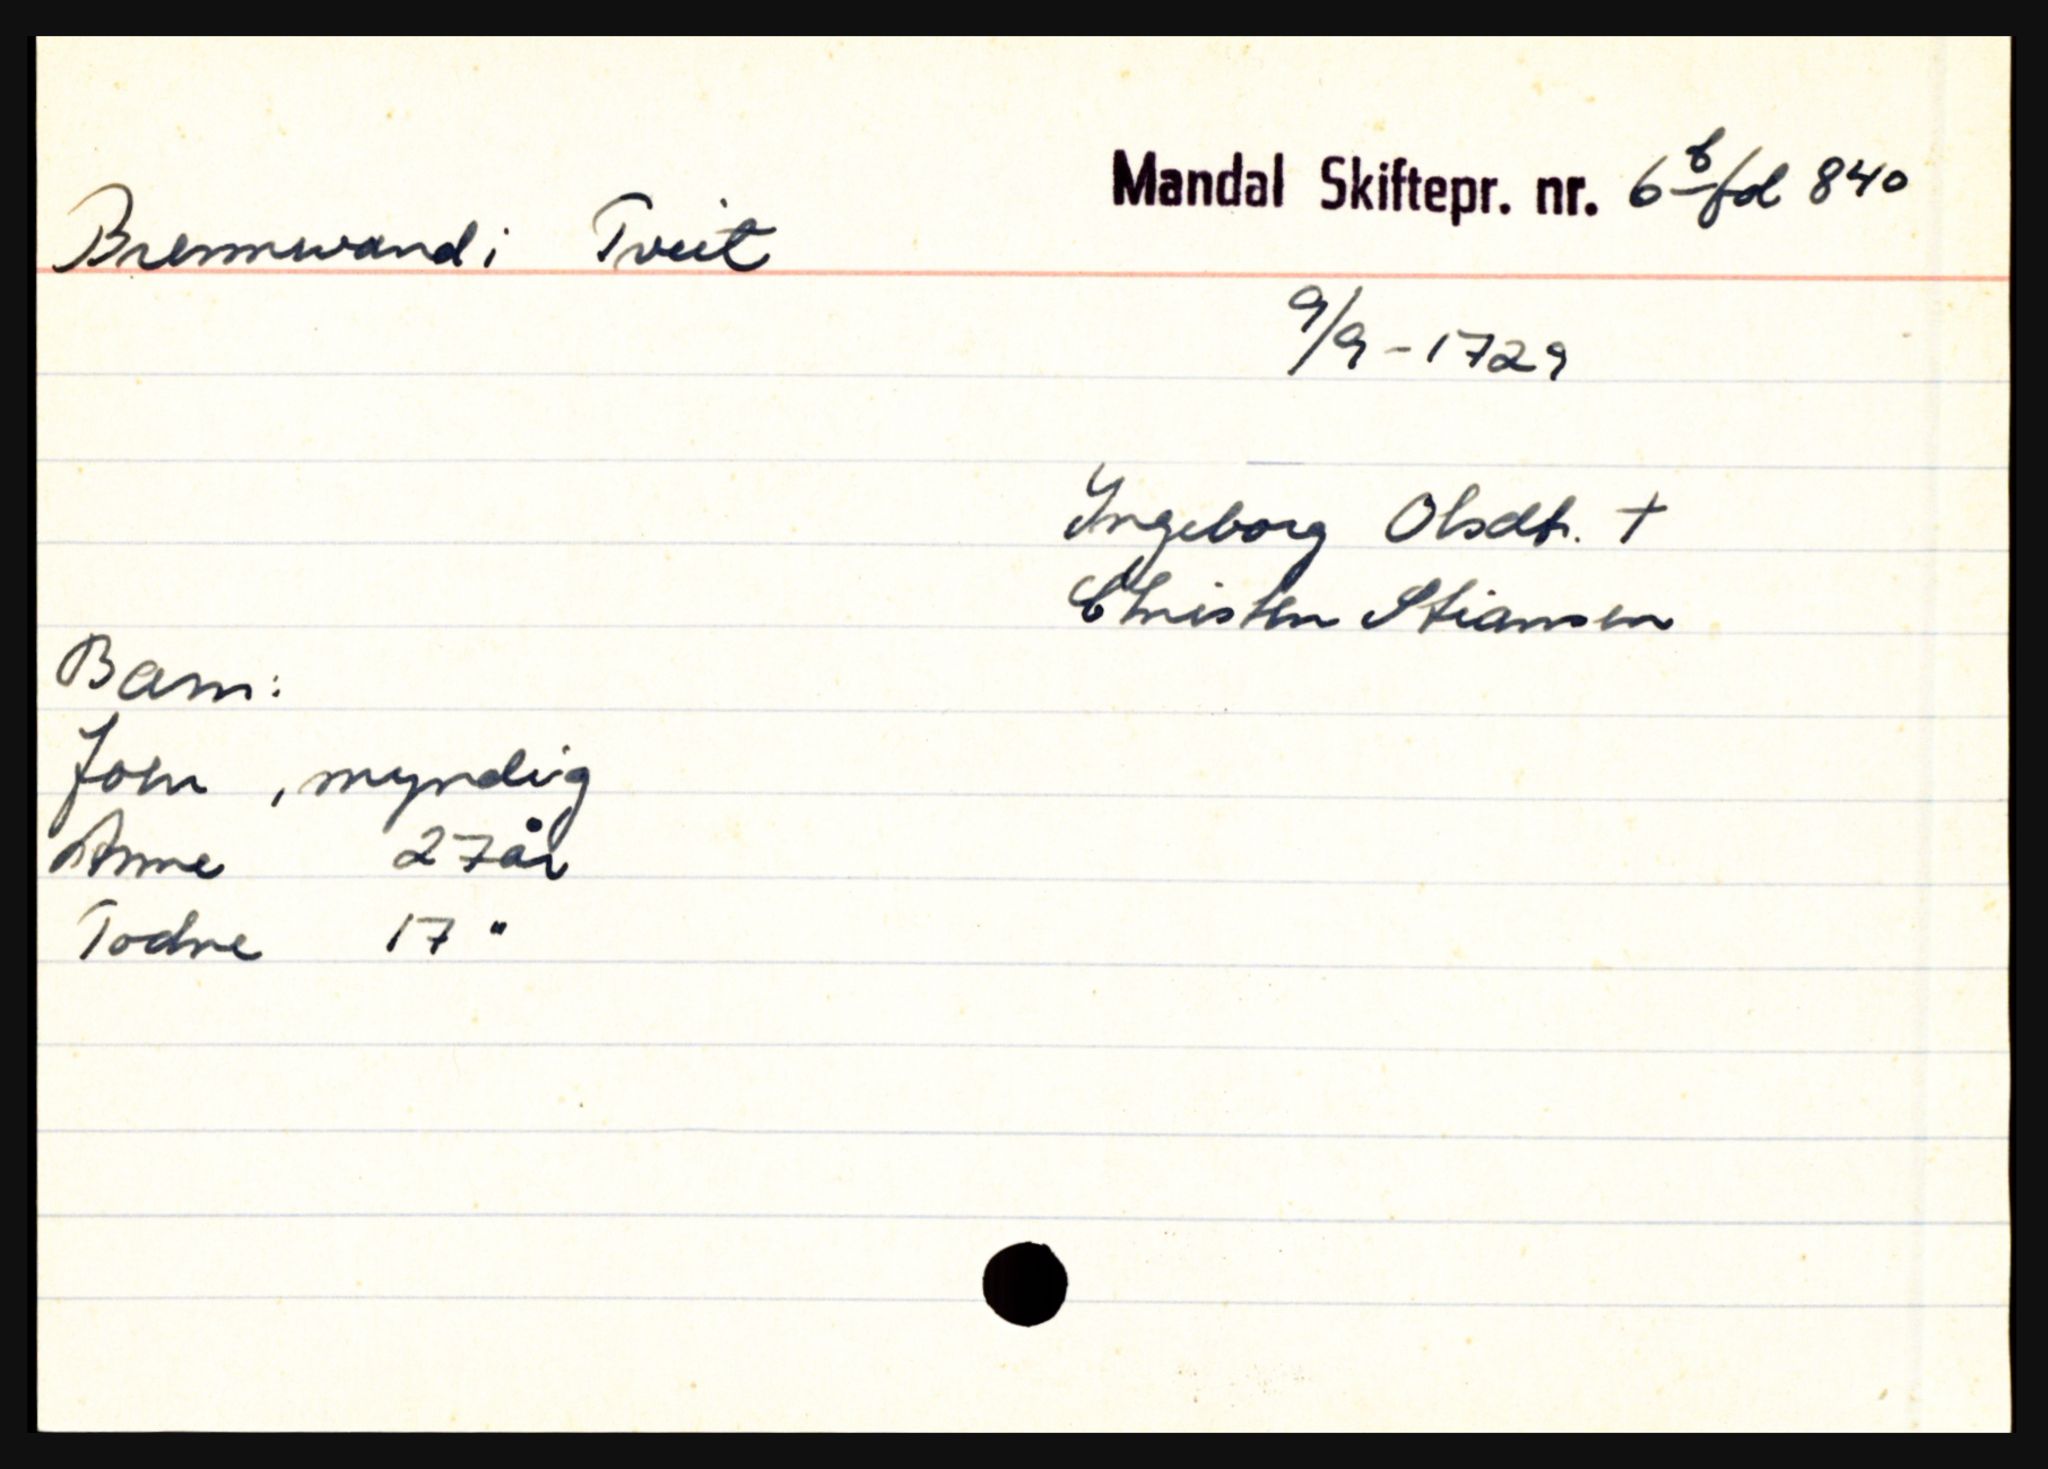 Mandal Skiftepr. nr. 6b fol 840
Brennevand i Tveit
9/9-1729
Ingeborg Olsdtr. +
Christen Stiansen
Barn:
Joen, myndig
Anne 27 år
Todne 17 "